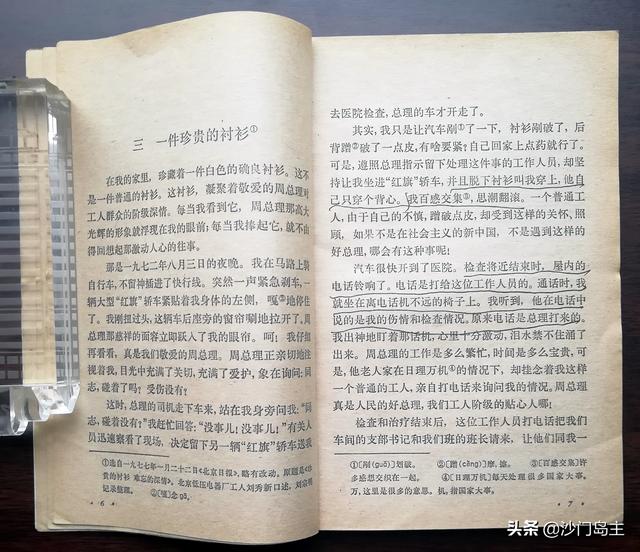 三　一件珍贵的衬衫①
在我的家里，珍藏着一件白色的确良衬衫。这不
是一件普通的衬衫。这衬衫，凝聚着敬爱的周总理对
工人群众的阶级深情。每当我看到它，周总理那高大
光辉的形象就浮现在我的眼前；每当我捧起它，就不由
得回想起那激动人心的往事。
那是一九七二年八月三日的夜晚。我在马路上骑
自行车，不留神插进了快行线。突然一声紧急刹车，一
辆大型“红旗”轿车紧贴着我身体的左侧，嘎②地停住
了。我刚扭过头，这辆车后座旁的窗帘唰地拉开了。周
总理那慈祥的面容立即跃入了我的眼帘。呵！我仔细
再看看，真是我们敬爱的周总理。周总理正亲切地注
视着我，目光中充满了关切，充满了爱护，象在询问：同
志，碰着了吗？受伤没有？
这时，总理的司机走下车来，站在我身旁问我：“同
志，碰着没有？”我赶忙回答：“没事儿！没事儿！”有关人
员迅速察看了现场，决定留下另一辆“红旗”轿车送我
①选自一九七七年一月二十二日《北京日报》，略有改动。原题是《珍
贵的衬衫 难忘的深情》。北京低压电器厂工人刘秀新口述，刘宗明
记录整理。　②〔嘎〕念 gā。
· 6 ·
去医院检查，总理的车才开走了。
其实，我只是让汽车剐①了一下，衬衫剐破了，后
背蹭②破了一点皮，有啥要紧？自己回家上点药就行了。
可是，遵照总理指示留下处理这件事的工作人员，却坚
持让我坐进“红旗”轿车，并且脱下衬衫叫我穿上，他自
己只穿个背心。我百感交集③，思潮翻滚。一个普通工
人，由于自己的不慎，蹭破点皮，却受到这样的关怀、照
顾，如果不是在社会主义的新中国，不是遇到这样的
好总理，哪会有这种事呢！
汽车很快开到了医院。检查将近结束时，屋内的
电话铃响了。电话是打给这位工作人员的。通话时，我
就坐在离电话机不远的椅子上。我听到，他在电话中
说的是我的伤情和检查情况，原来电话是总理打来的。
我出神地盯着那话机，心里十分激动，泪水禁不住涌了
出来。周总理的工作是多么繁忙，时间是多么宝贵，可
是，他老人家在日理万机④的情况下，却挂念着我这样
一个普通的工人，亲自打电话来询问我的情况。周总理
真是人民的好总理，我们工人阶级的贴心人哪！
检查和治疗结束后，这位工作人员打电话把我们
车间的支部书记和我们班的班长请来，让他们回我一
①〔剐(guǎ)〕划破。　②〔蹭(cèng)〕摩，擦。　③〔百感交集〕许
多感想交织在一起。　④〔日理万机〕每天处理很多国家大事。
万，这里是很多的意思。机，指国家大事。
· 7 ·
头条 @沙门岛主